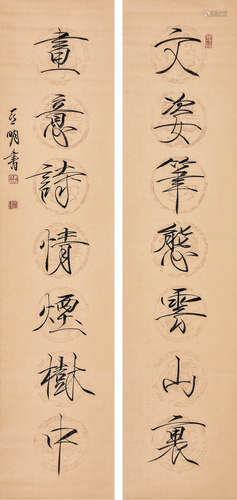 文姿筆態雲山裏
畫意詩情煙樹中
启明書